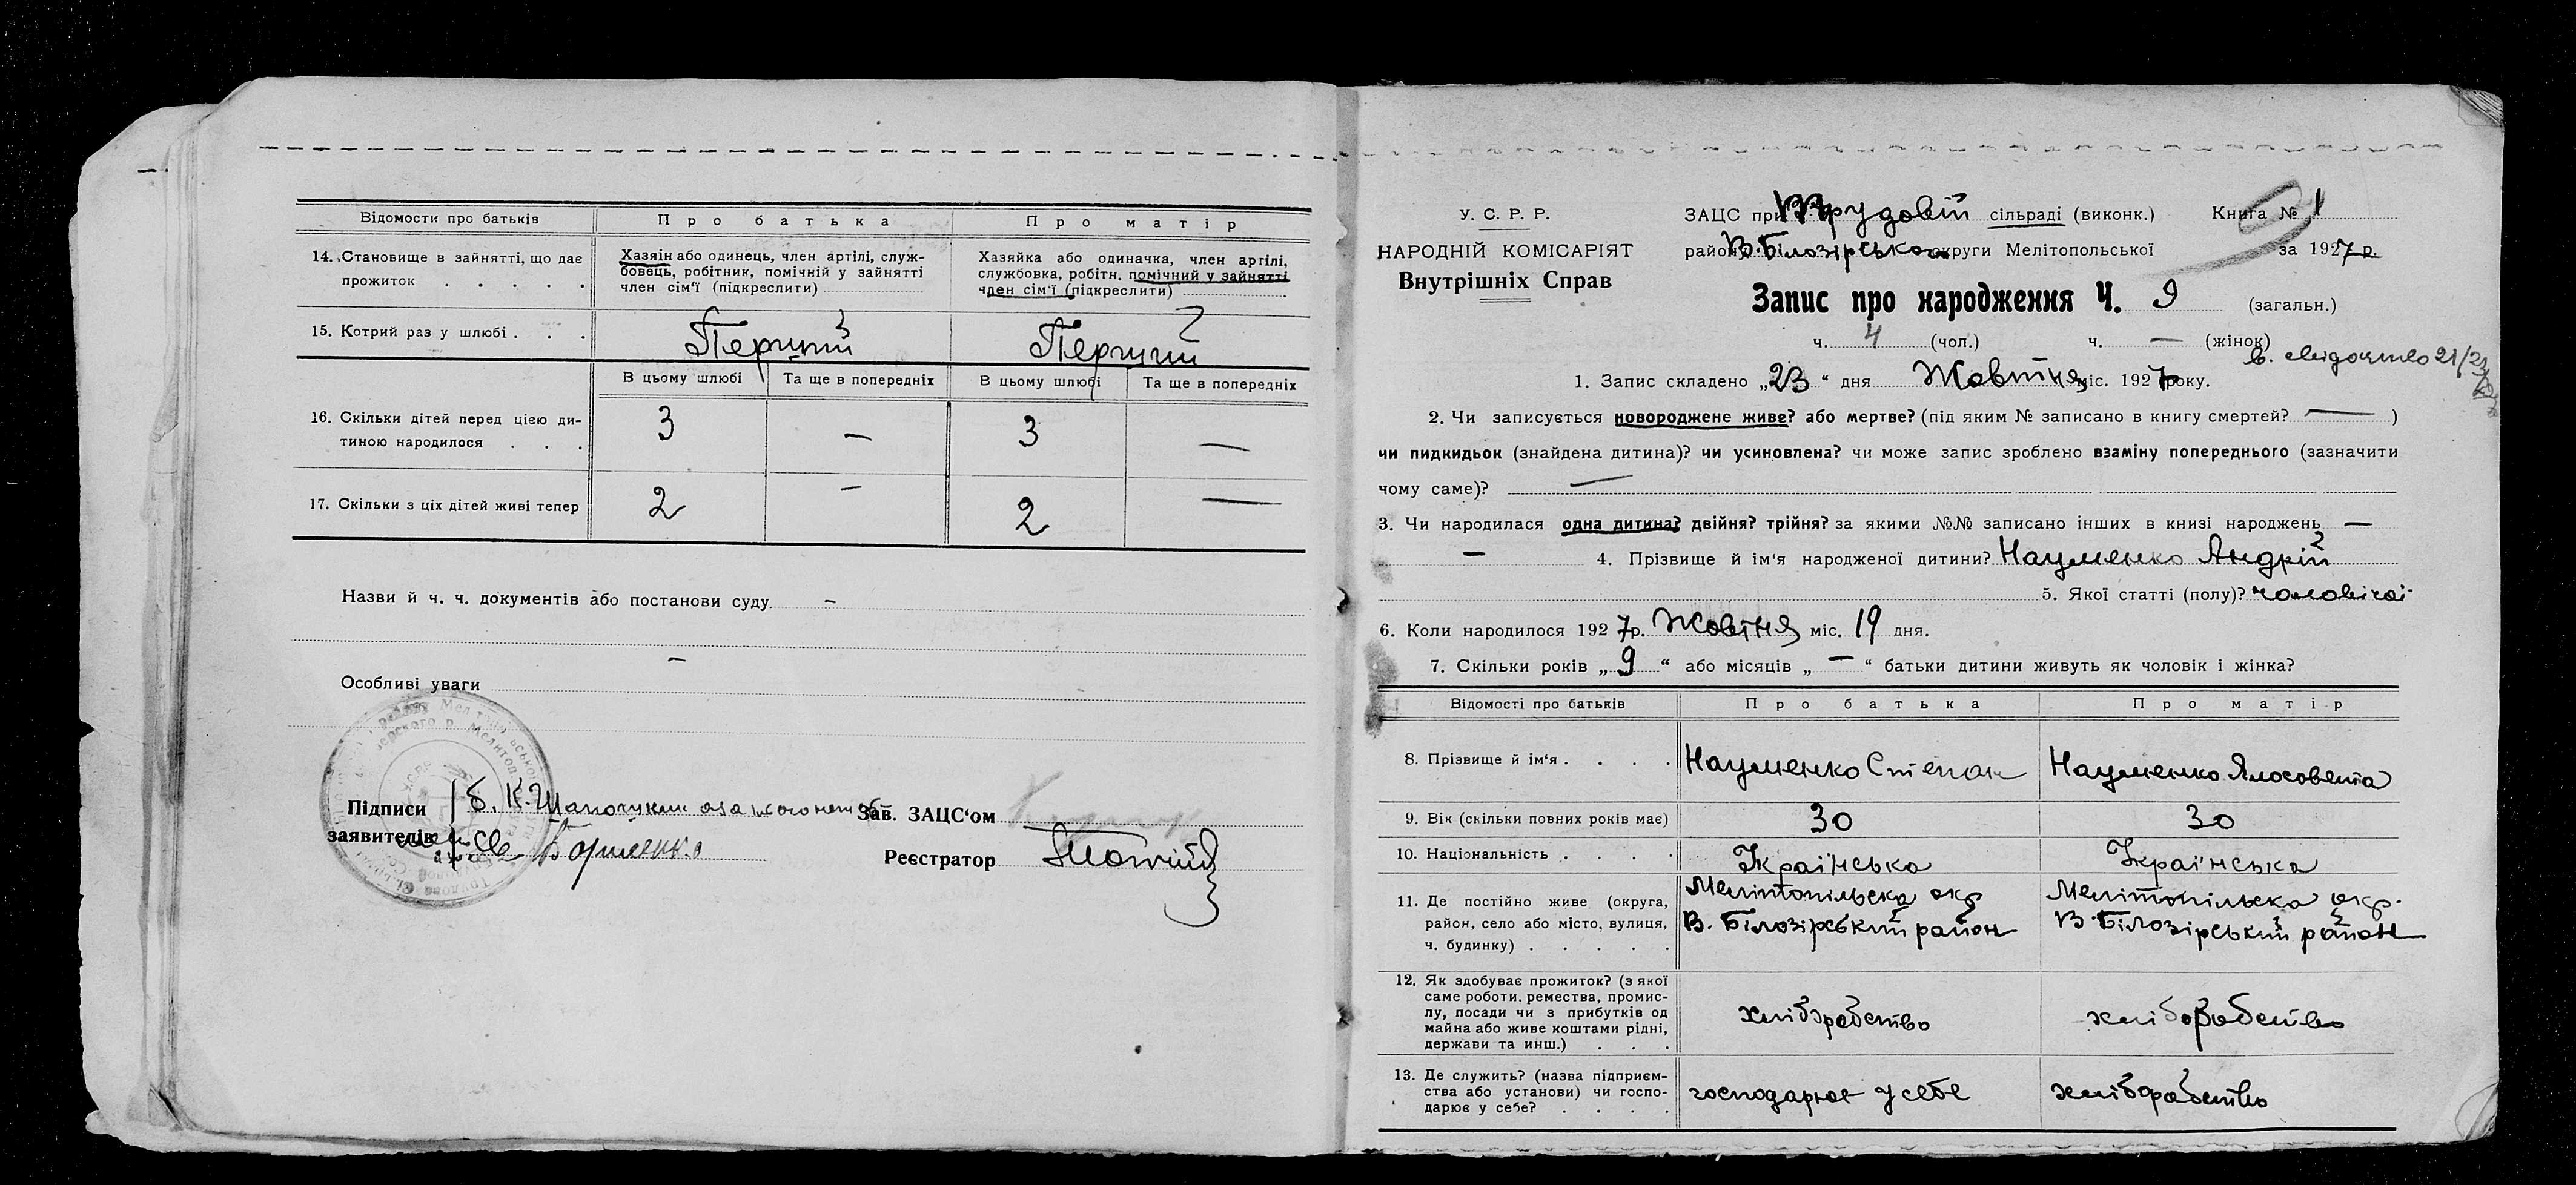 Відомости про батьків
Про батька
Про матір
14. Становище в зайнятті, що дає прожиток . . . . .
Хазяін або одинець, член артілі, служ-
бовець, робітник, помічній у зайнятті
член сім'ї (підкреслити)
Хазяйка або одиначка, член артілі,
службовка, робітн. помічний у зайнятті
член сім'ї (підкреслити)
15. Котрий раз у шлюбі . . .
Перший
Перший
В цьому шлюбі
Та ще в попередніх
В цьому шлюбі
Та ще в попередніх
16. Скільки дітей перед цією ди-
тиною народилося . . .
3
—
3
—
17. Скільки з ціх дітей живі тепер
2
—
2
—
Назви й ч. ч. документів або постанови суду. –
–
Особливі уваги
Підписи
заявителів
Зав. ЗАЦС'ом
Реєстратор
У. С. Р. Р.
НАРОДНІЙ КОМІСАРІЯТ
Внутрішніх Справ
ЗАЦС при Трудовій сільраді (виконк.) Книга № 1
району В. Білозірсько округи Мелітопольської за 1927 р.
Запис про народження Ч. 9 (загальн.)
ч. 4 (чол.) ч. — (жінок)
1. Запис складено „23" дня Жовтня міс. 1927 року.
2. Чи записується новороджене живе? або мертве? (під яким № записано в книгу смертей? —)
чи пидкидьок (знайдена дитина)? чи усиновлена? чи може запис зроблено взаміну попереднього (зазначити
чому саме)? —
3. Чи народилася одна дитина? двійня? трійня? за якими №№ записано інших в книзі народжень —
— 4. Прізвище й ім'я народженої дитини? Науменко Андрій
5. Якої статті (полу)? чоловічої
6. Коли народилося 1927 р. Жовтня міс. 19 дня.
7. Скільки років „9" або місяців „—" батьки дитини живуть як чоловік і жінка?
Відомості про батьків
Про батька
Про матір
8. Прізвище й ім'я . . . .
Науменко Степан
Науменко Ялосовета
9. Вік (скільки повних років має)
30
30
10. Національність . . . .
Українська
Українська
11. Де постійно живе (округа,
район, село або місто, вулиця,
ч. будинку) . . . . .
Мелітопільска окр
В. Білозірський район
Мелітопільска окр.
В. Білозірський район
12. Як здобуває прожиток? (з якої
саме роботи, ремества, промис-
лу, посади чи з прибутків од
майна або живе коштами рідні,
держави та инш.) . . .
хліборобство
хліборобство
13. Де служить? (назва підприєм-
ства або установи) чи госпо-
дарює у себе? . . . .
господарює у себе
хліборобство